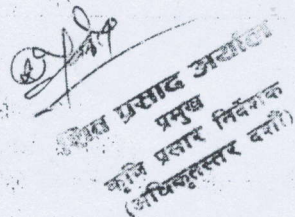 प्रसाद अर्याल
प्रमुख
कृषि प्रसार निर्देशक
(अधिकृतस्तर दशौं)